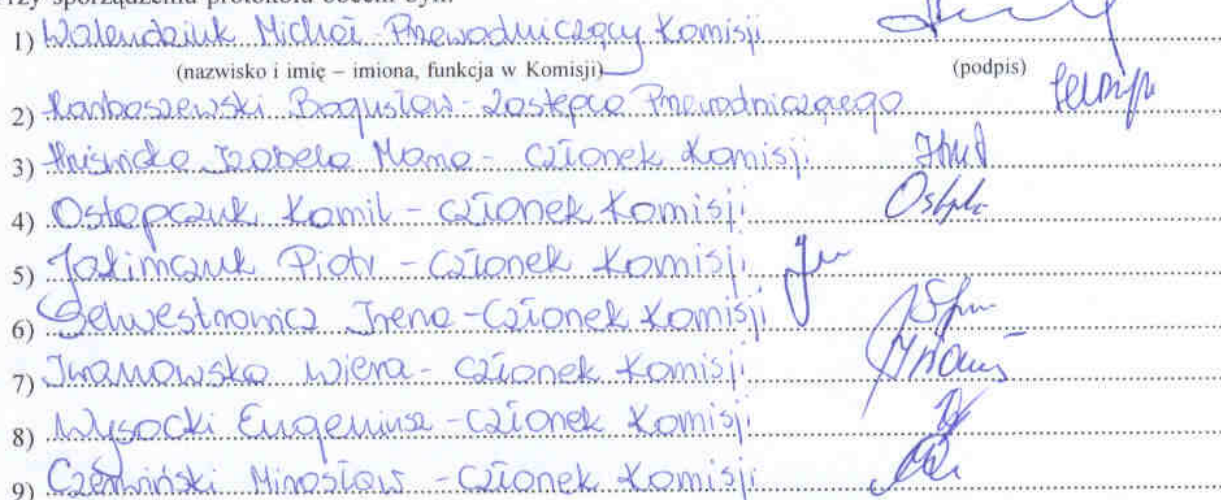 przy sporządzeniu protokołu obecni byli:
1) Walendziuk Michał - Przewodniczący Komisji
(nazwisko i imię – imiona, funkcja w Komisji) (podpis)
2) Karboszewski Bogusław - Zastępca Przewodniczącego
3) Izabela - Członek Komisji
4) Ostapczuk Kamil - Członek Komisji
5) Jakimczuk Piotr - Członek Komisji
6) Selwestrowicz Irena - Członek Komisji
7) Iwanowska Wiera - Członek Komisji
8) Wysocki Eugeniusz - Członek Komisji
9) Czerwiński Mirosław - Członek Komisji